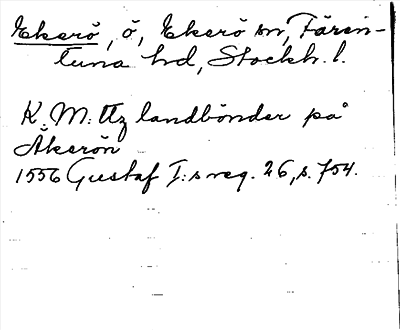 Ekerö, ö, Ekerö sn, Fären-
tuna hd, Stockh. l.
K. M:ttz landbönder på
Åkerön
1556 Gustaf I:s reg. 26, s. 754.